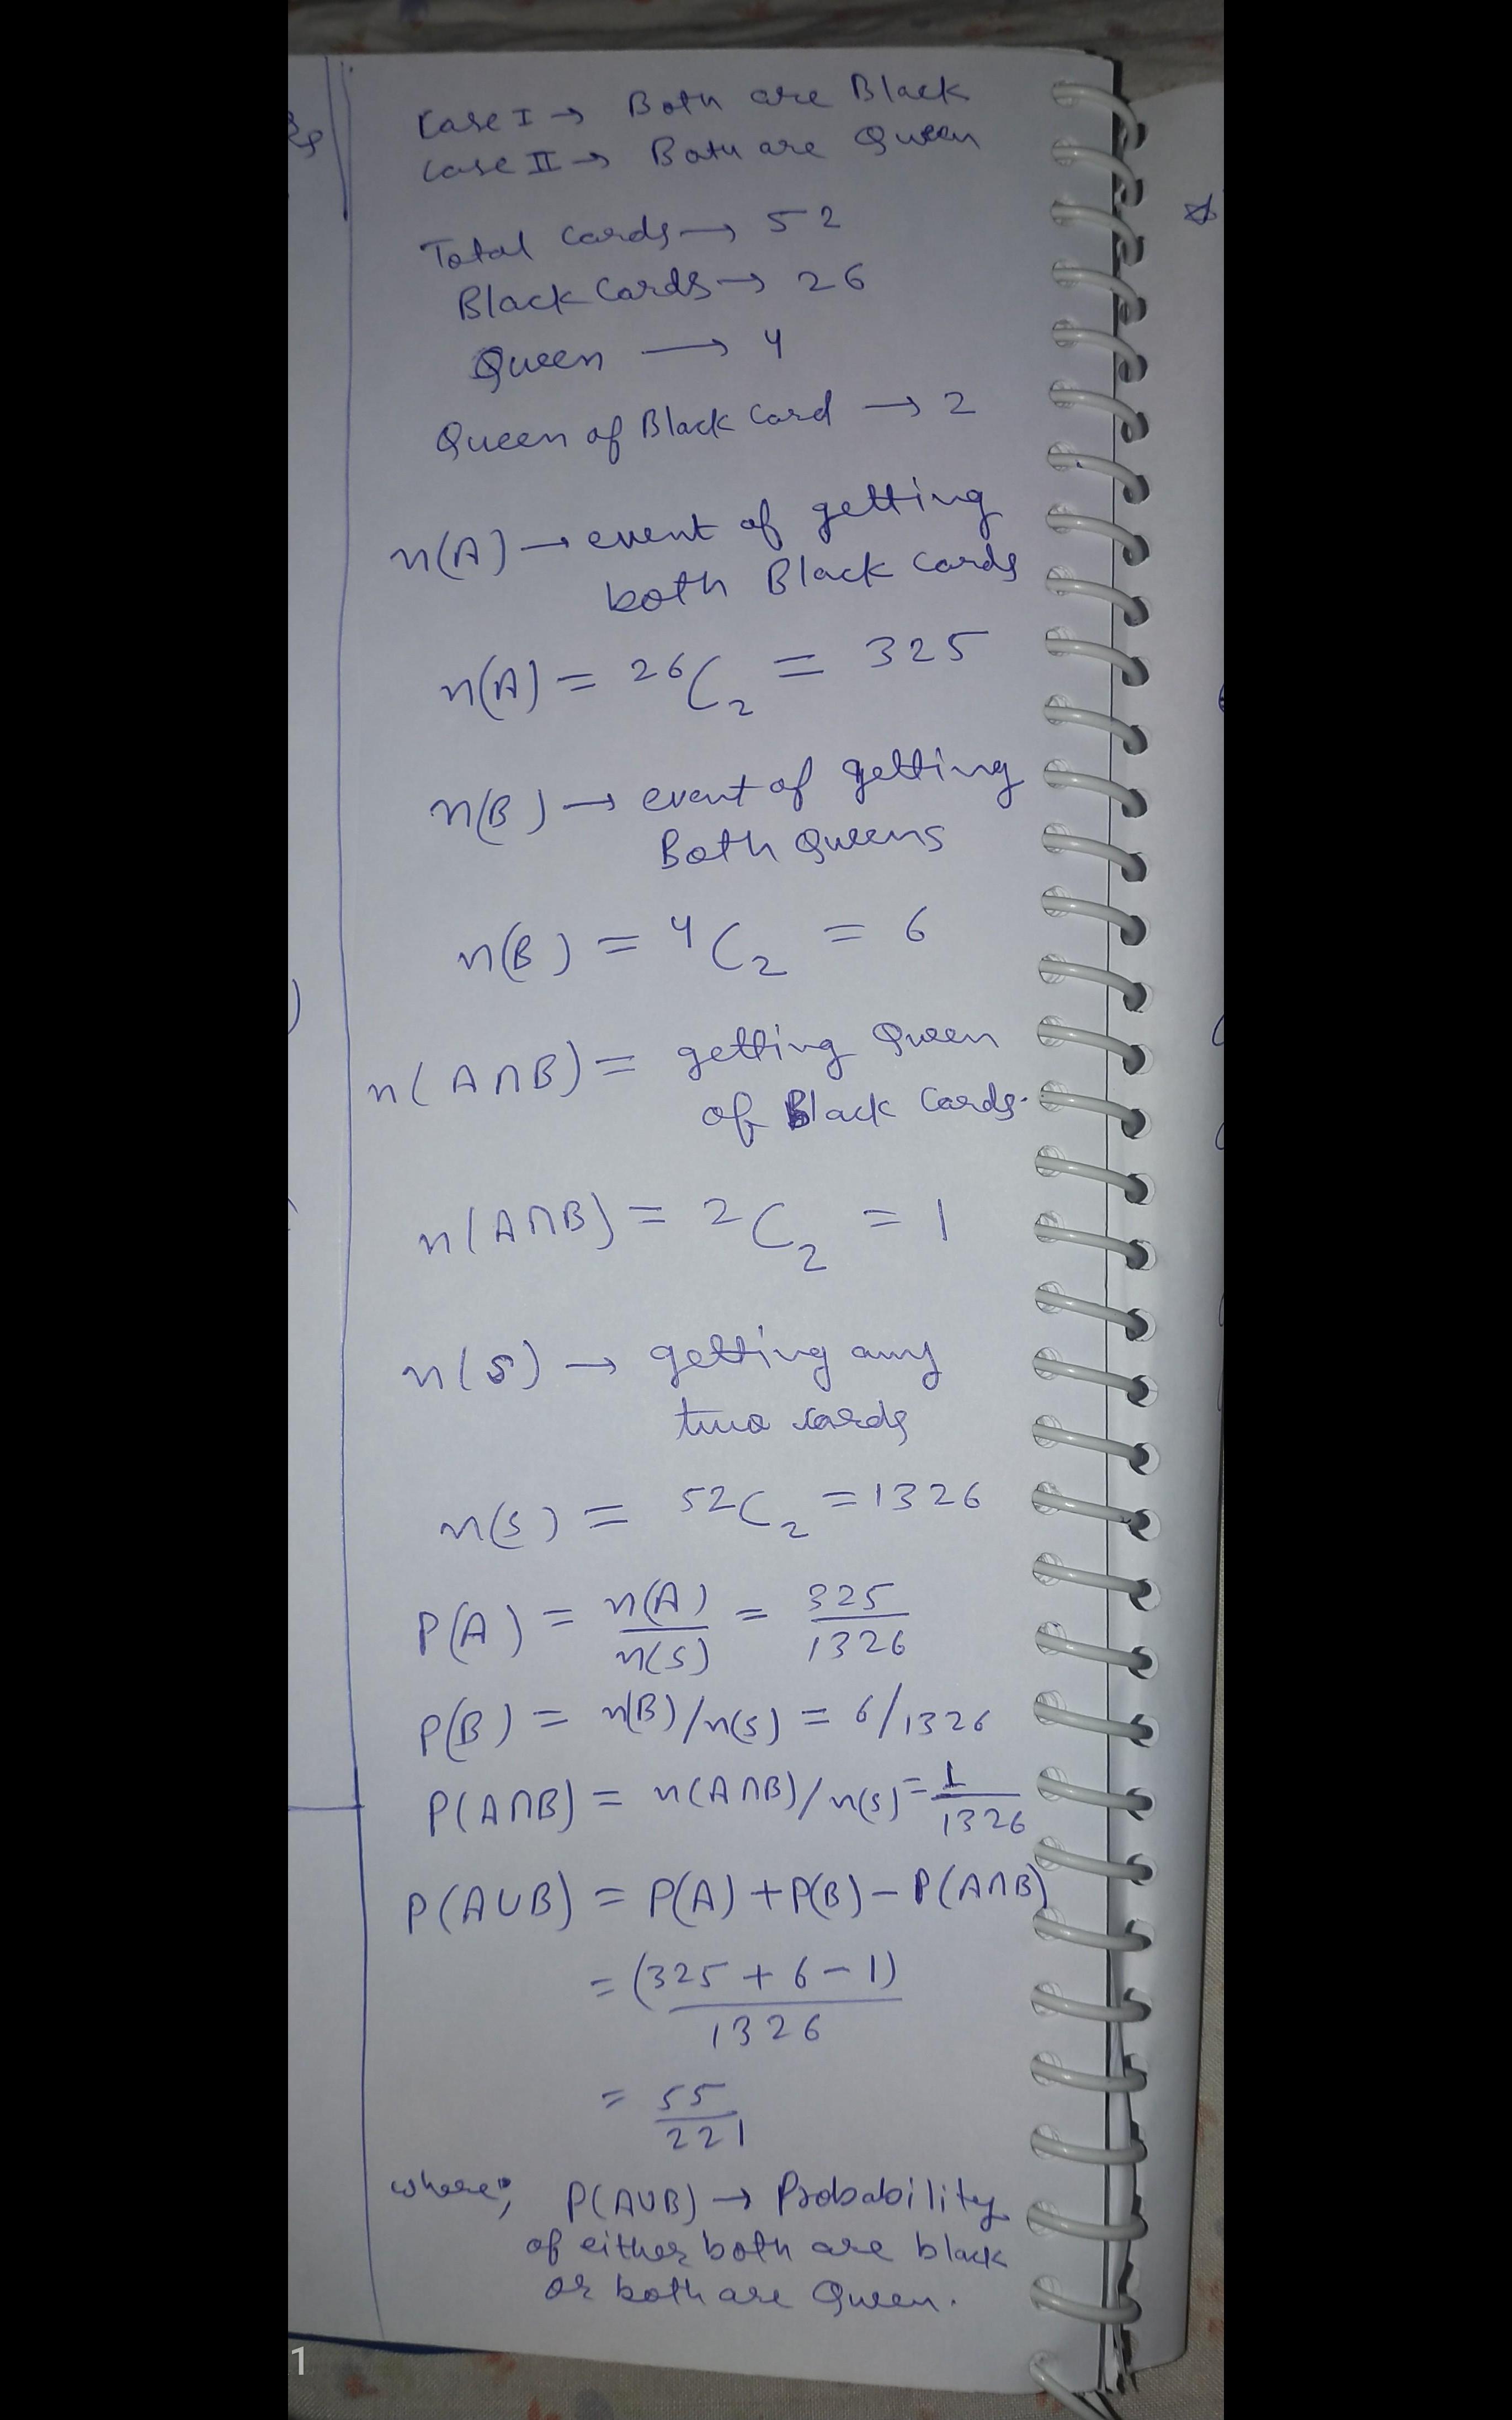 Case I → Both are Black
Case II → Both are Queen
Total Cards → 52
Black Cards → 26
Queen → 4
Queen of Black Card → 2
n(A) → event of getting
both Black cards
n(A) = 26C2 = 325
n(B) → event of getting
Both Queens
n(B) = 4C2 = 6
n(A∩B) = getting Queen
of Black Cards.
n(A∩B) = 2C2 = 1
n(S) → getting any
two cards
n(S) = 52C2 = 1326
P(A) = n(A)/n(S) = 325/1326
P(B) = n(B)/n(S) = 6/1326
P(A∩B) = n(A∩B)/n(S) = 1/1326
P(A∪B) = P(A) + P(B) - P(A∩B)
= (325 + 6 - 1)/1326
= 55/221
where, P(A∪B) → Probability
of either both are black
or both are Queen.
1